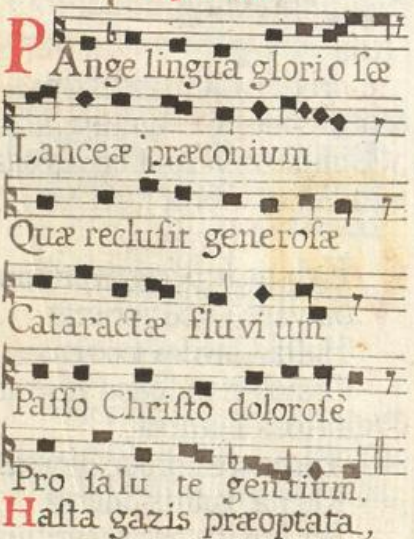 PAnge lingua glorio sæ
Lanceæ præconium
Quæ reclusit generosæ
Cataractæ fluvi um
Passo Christo dolorosè
Pro salu te gentium.
Hasta gazis præoptata,